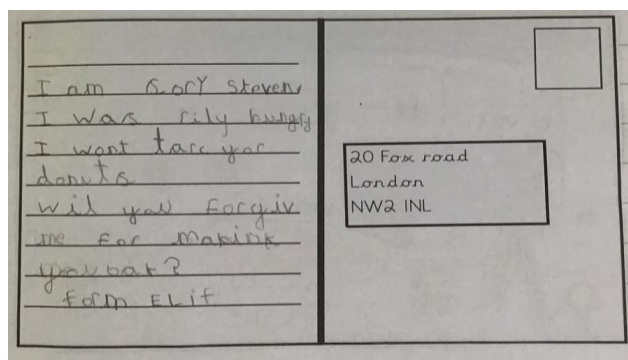 I am sory Steven
I was rily hungry
I wont tacc yor
donuts
wil you forgiv
me for making
you
form ELif
20 Fox road
London
NW2 INL